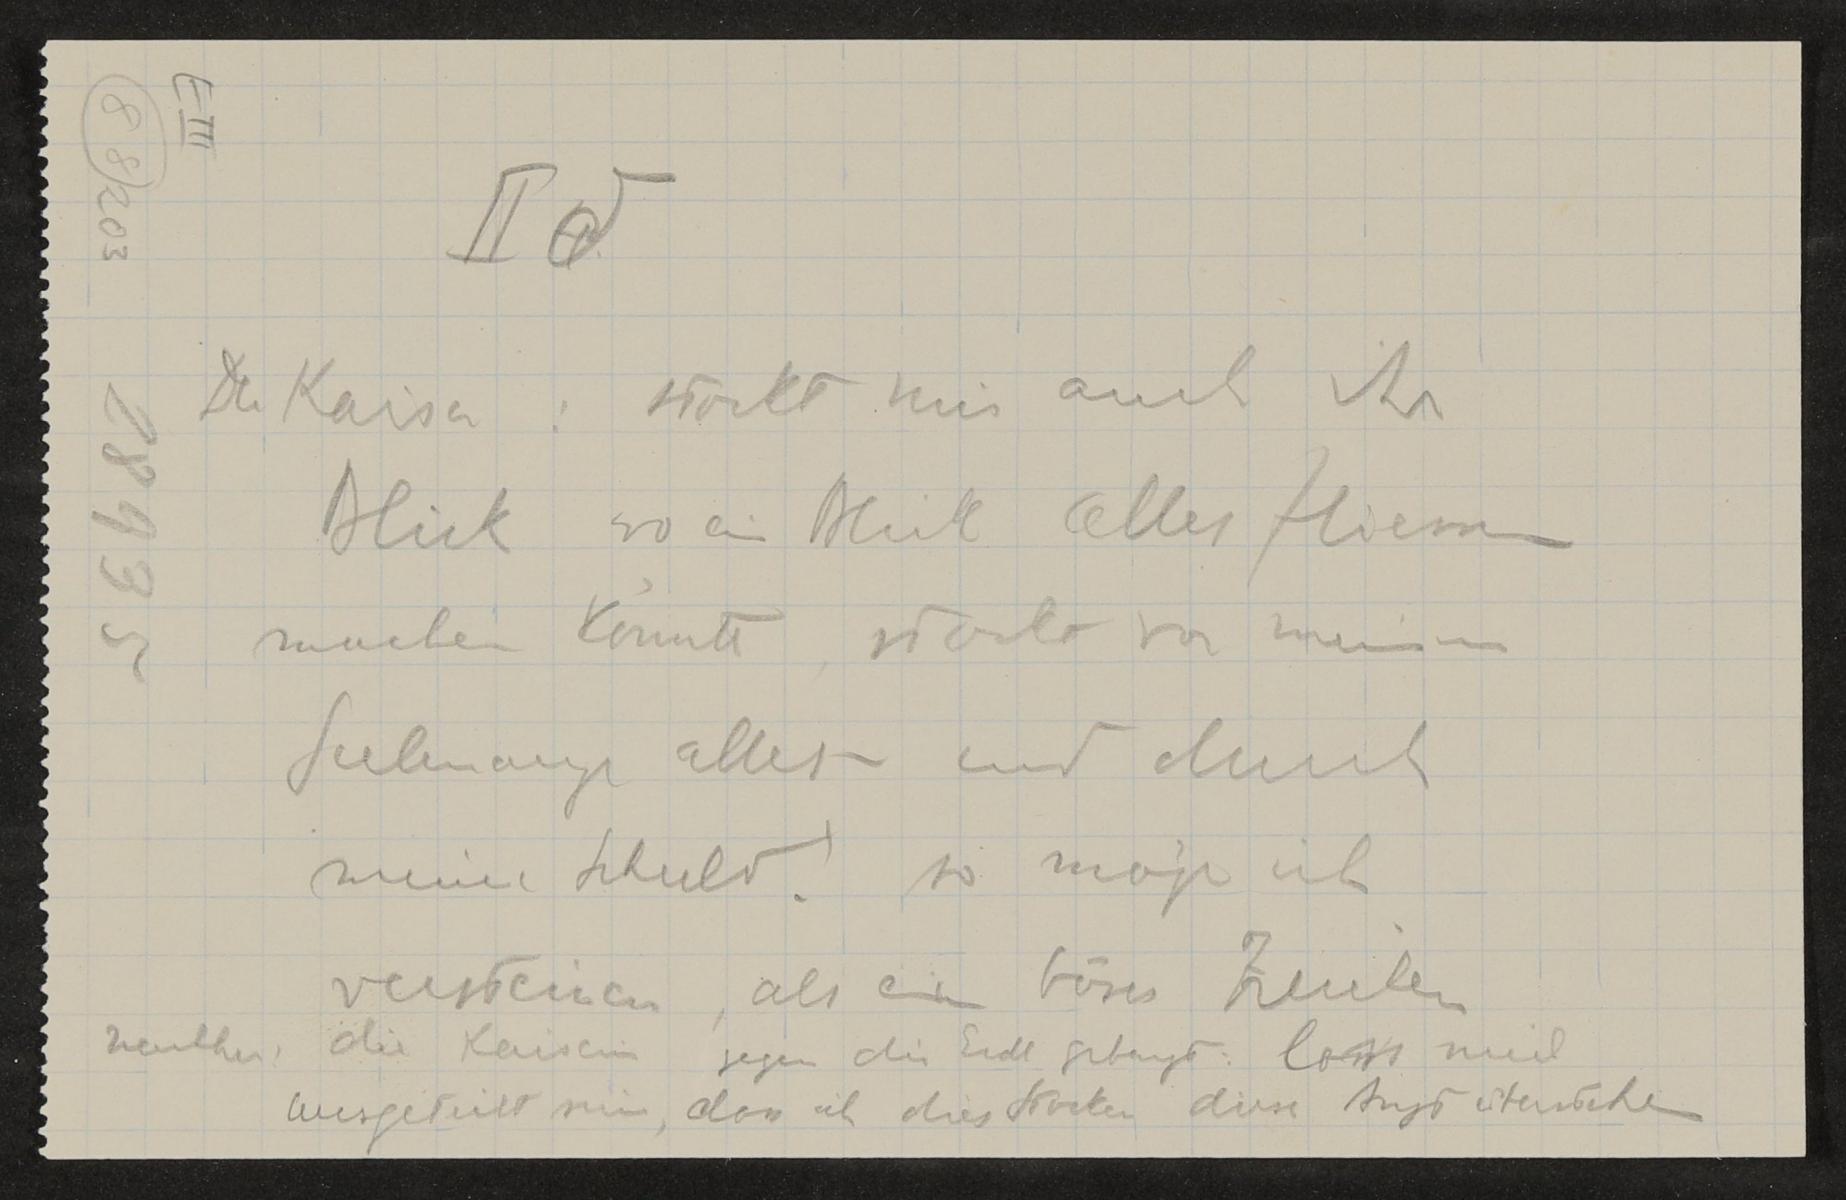 E III
88/203
28935
II d
Der Kaiser : stockt mir auch ihr
Blick so ein Blick alles fliessen
machen könnte, stockt vor meinem
Seelenauge alles und durch
meine Schuld! so möge ich
versteinen, als ein böses Zeichen
nachher: die Kaiserin gegen die Erde gebeugt: lass mich
ausgeteilt sein, dass ich dies Stocken diese Angst überstehe